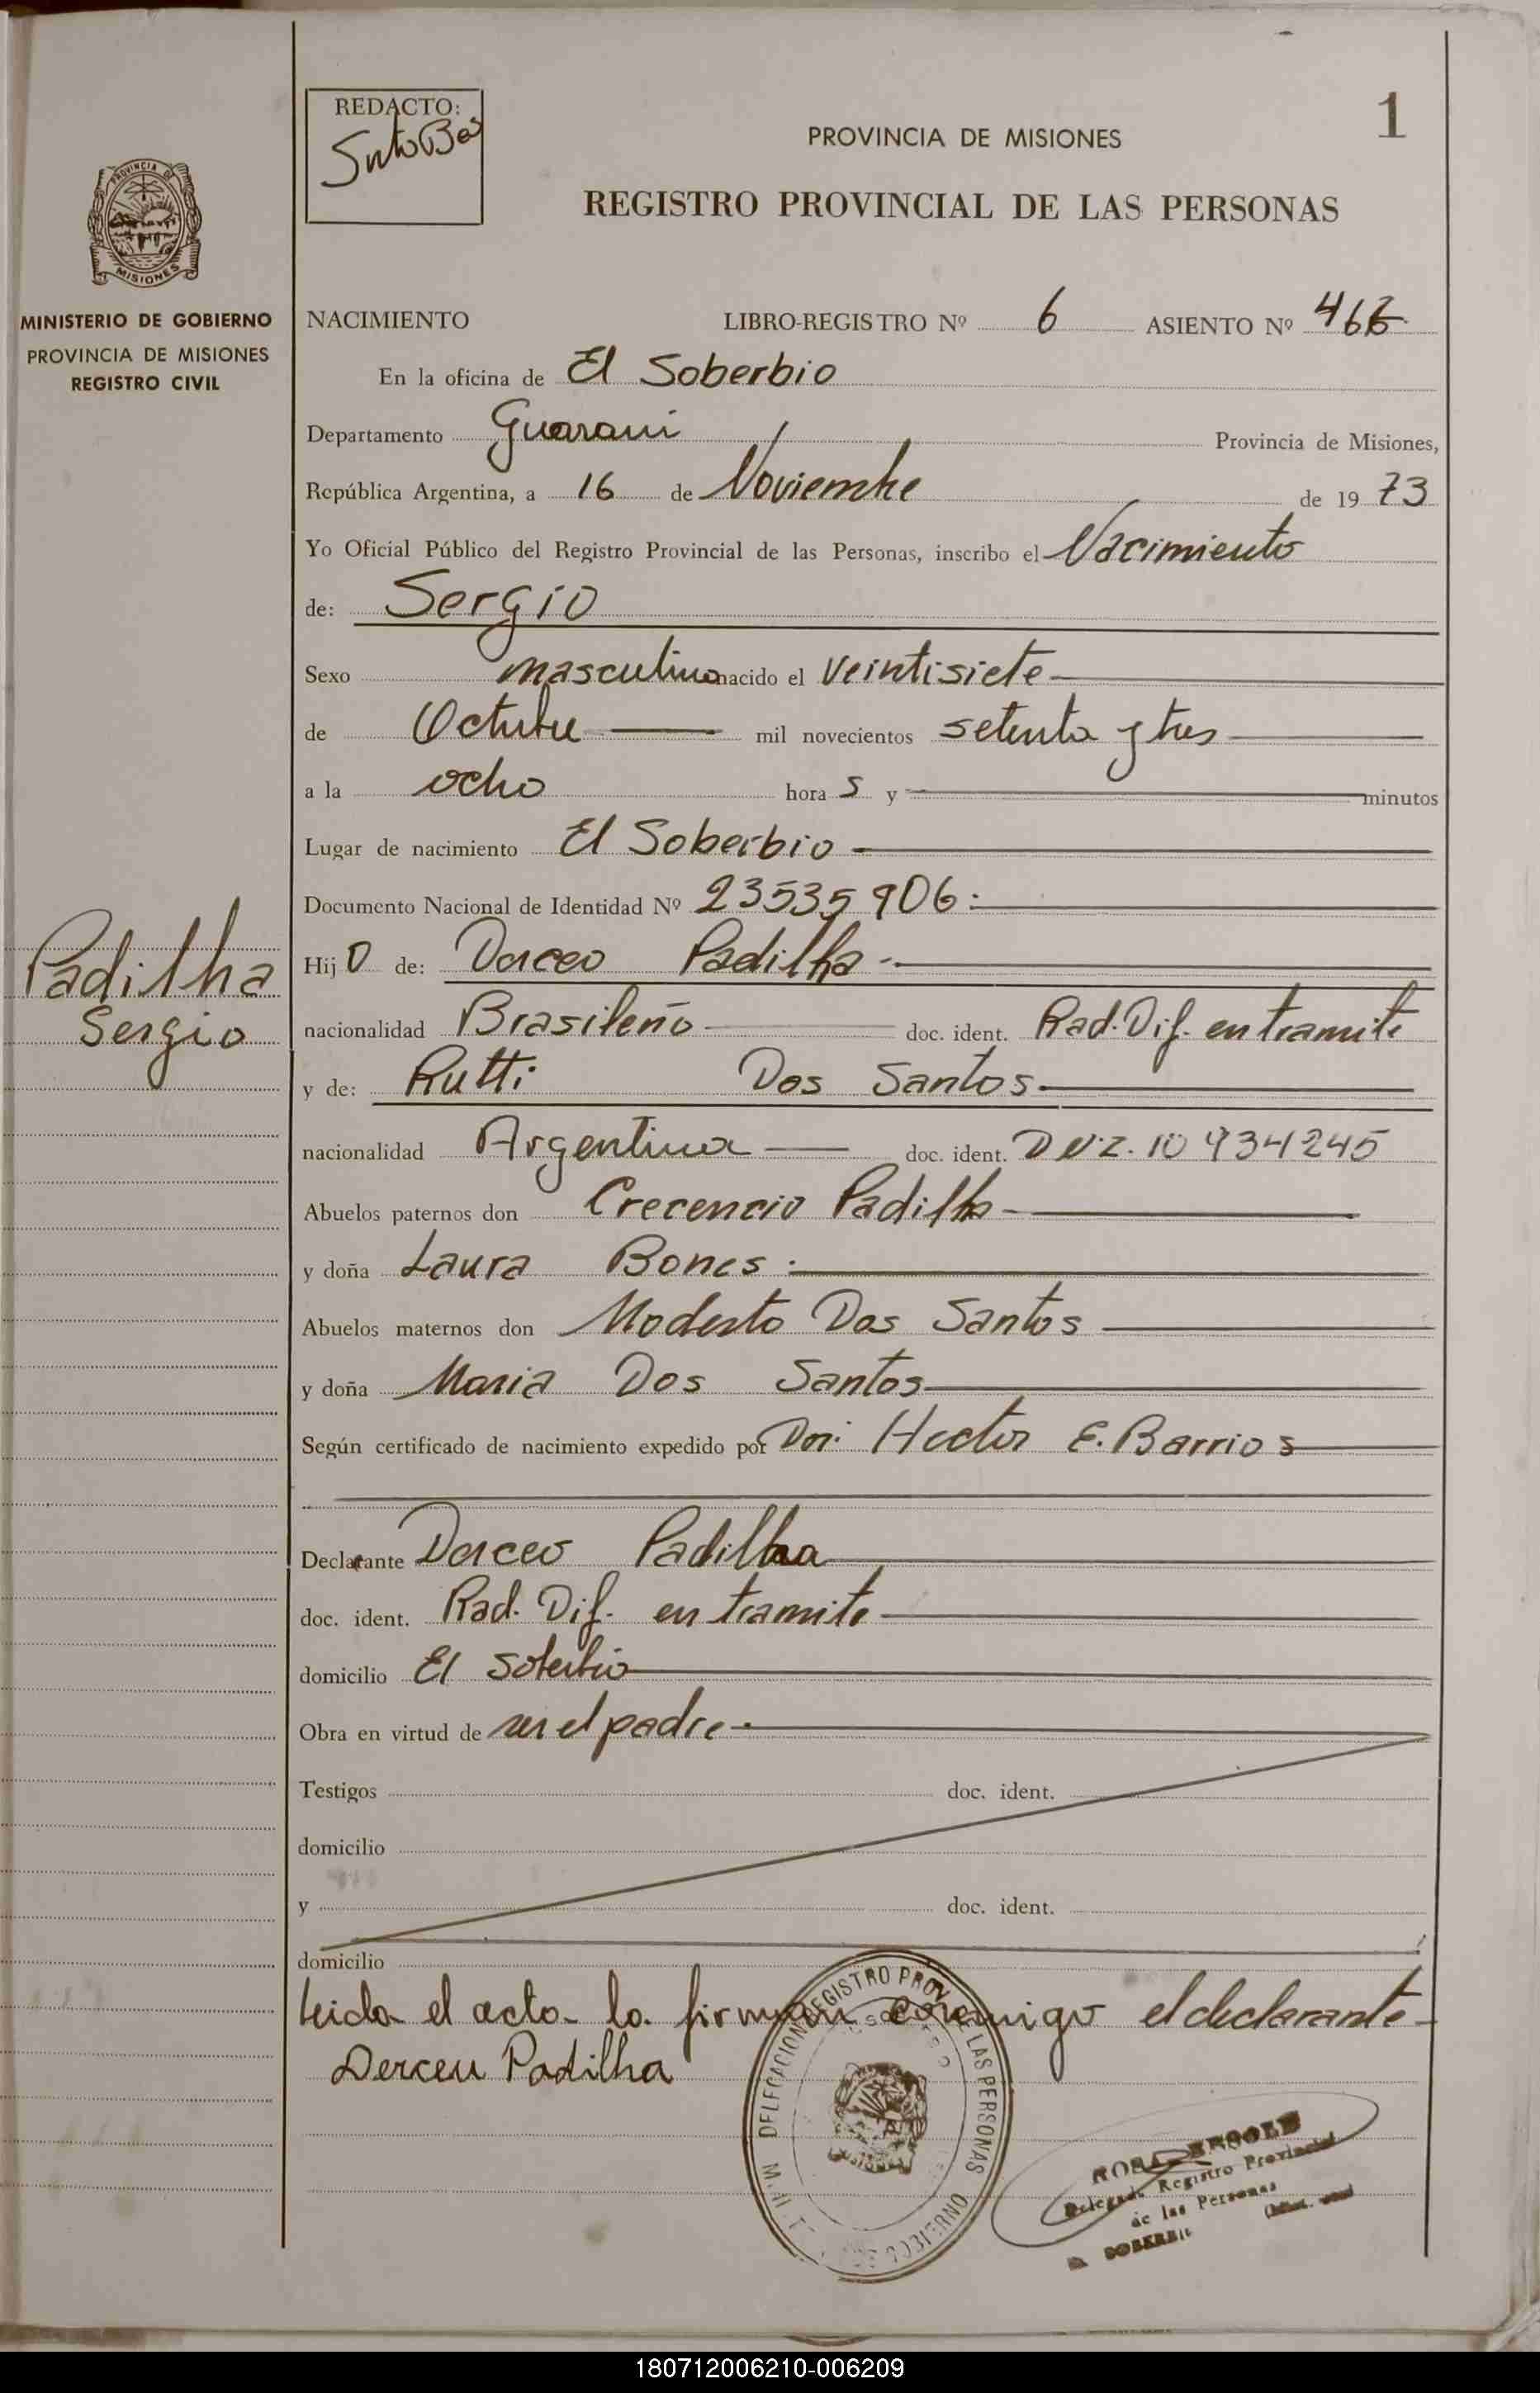 1
REDACTO:
PROVINCIA DE MISIONES
REGISTRO PROVINCIAL DE LAS PERSONAS
PROVINCIA DE
MISIONES
MINISTERIO DE GOBIERNO
PROVINCIA DE MISIONES
REGISTRO CIVIL
NACIMIENTO LIBRO-REGISTRO Nº 6 ASIENTO Nº
En la oficina de El Soberbio
Departamento Guarani Provincia de Misiones,
República Argentina, a 16 de Noviembre de 1973
Yo Oficial Público del Registro Provincial de las Personas, inscribo el Nacimiento
de: Sergio
Sexo masculino nacido el veintisiete
de Octubre mil novecientos setenta y tres
a la ocho horas y minutos
Lugar de nacimiento El Soberbio
Documento Nacional de Identidad Nº 23535906
Padilha
Sergio
Hijo de: Derceo Padilha
nacionalidad Brasileño doc. ident. Rad. Dif. en tramite
y de: Rutti Dos Santos
nacionalidad Argentina doc. ident. 10934245
Abuelos paternos don Crecencio Padilha
y doña Laura Bones
Abuelos maternos don Modesto Dos Santos
y doña Maria Dos Santos
Según certificado de nacimiento expedido por Hector E. Barrios
Declarante Derceo Padilha
doc. ident. Rad. Dif. en tramite
domicilio El Soberbio
Obra en virtud de ser el padre
Testigos doc. ident.
domicilio
y doc. ident.
domicilio
Leida el acta lo firman conmigo el declarante
Derceu Padilha
DELEGACION REGISTRO PROV. DE LAS PERSONAS
GOBIERNO
Delegado Registro Provincial
de las Personas
SOBERBIO
180712006210-006209